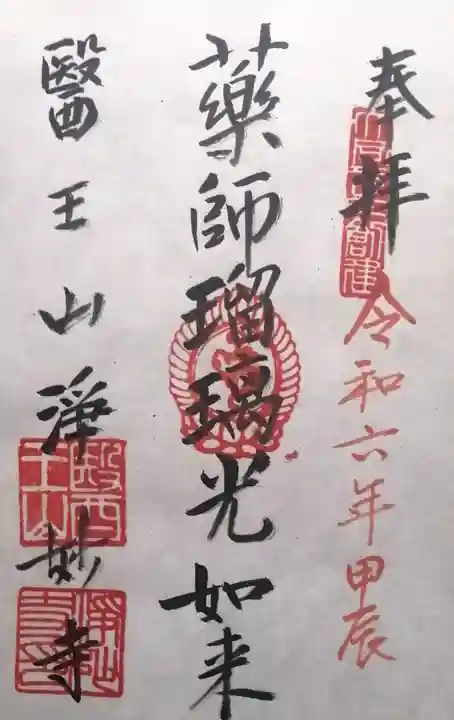 奉拝
令和六年甲辰
薬師瑠璃光如来
醫王山淨妙寺
醫王山